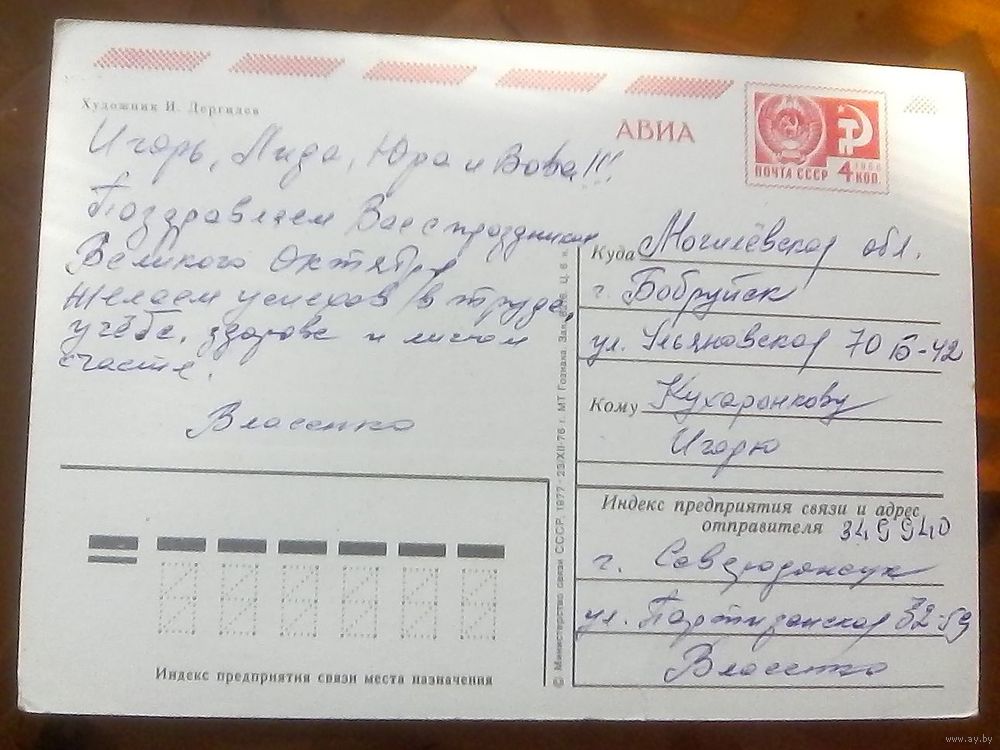 Художник И. Дергилев
АВИА
ПОЧТА СССР 4 КОП. 1966
Игорь, Лида, Юра и Вова!!!
Поздравляем Вас с праздником
Великого Октября
Желаем успехов в труде,
учёбе, здоровье и личном
счастье.
Власенко
Куда Могилёвская обл.
г. Бобруйск
ул. Ульяновская 70 Б-42
Кому Кухаронкову
Игорю
Индекс предприятия связи и адрес
отправителя 349940
г. Северодонецк
ул. Партизанская 32-59
Власенко
Индекс предприятия связи места назначения
© Министерство связи СССР, 1977 - 23/XII-76 г. МТ Гознака. Зак. Ц. 6 к.
www.ay.by